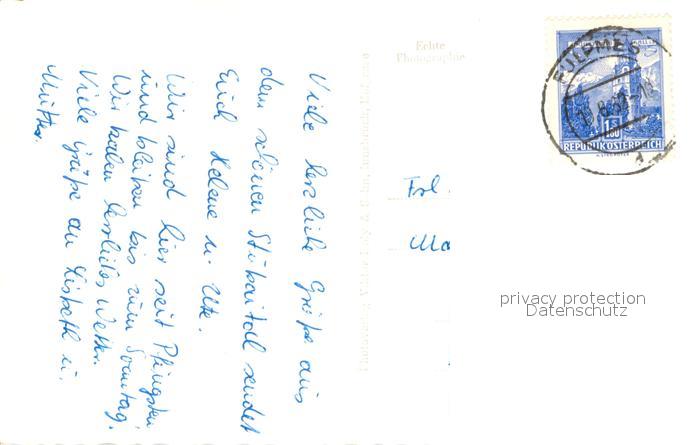 Viele herzliche Grüße aus
dem schönen Stubaital sendet
Euch Helene u. Ute.
Wir sind hier seit Pfingsten
und bleiben bis zum Sonntag.
Wir haben herrliches Wetter.
Viele Grüße an Lisbeth u.
Mutter.
Echte
Photographie
Frl.
Ma
FULPMES
1.50
REPUBLIK ÖSTERREICH
privacy protection
Datenschutz